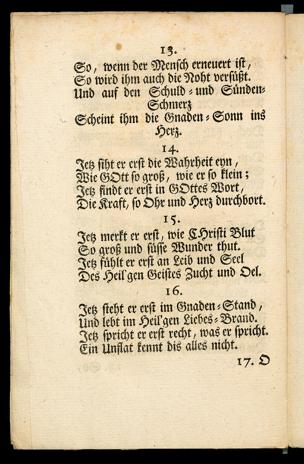 13.
So, wenn der Mensch erneuert ist,
So wird ihm auch die Noht versüßt.
Und auf den Schuld- und Sünden-
Schmerz
Scheint ihm die Gnaden-Sonn ins
Herz.
14.
Jetz siht er erst die Wahrheit eyn,
Wie GOtt so groß, wie er so klein;
Jetz findt er erst in GOttes Wort,
Die Kraft, so Ohr und Herz durchbort.
15.
Jetz merkt er erst, wie CHristi Blut
So groß und süsse Wunder thut.
Jetz fühlt er erst an Leib und Seel
Des Heil'gen Geistes Zucht und Oel.
16.
Jetz steht er erst im Gnaden-Stand,
Und lebt im Heil'gen Liebes-Brand.
Jetz spricht er erst recht, was er spricht.
Ein Unflat kennt dis alles nicht.
17. O